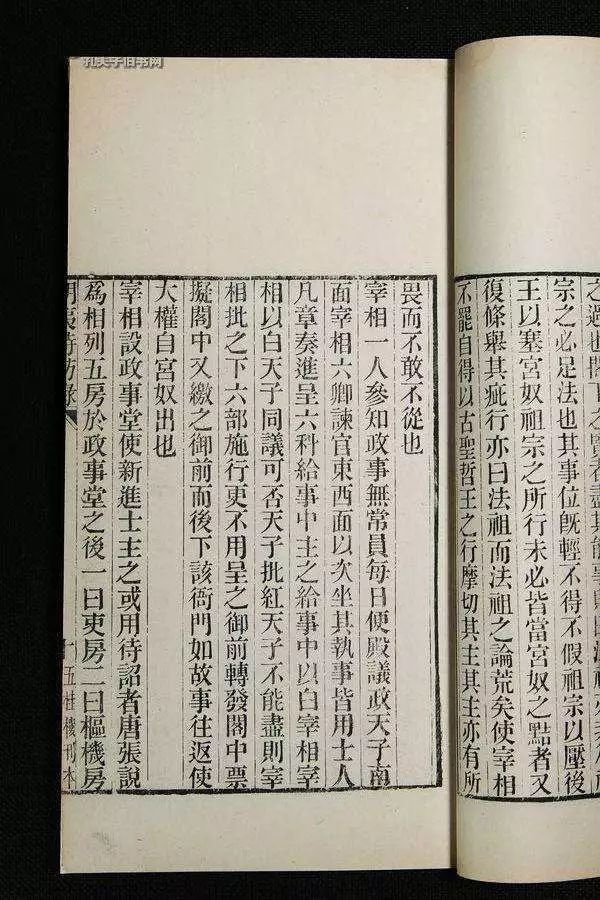 孔夫子旧书网
之過也閣下之賢者盡其能事則曰法祖亦非
宗之必足法也其事位旣輕不得不假祖宗以壓後
王以塞宮奴祖宗之所行未必皆當宮奴之黠者又
復條舉其疵行亦曰法祖而法祖之論荒矣使宰相
不罷自得以古聖哲王之行摩切其主其主亦有所
畏而不敢不從也
宰相一人參知政事無常員每日便殿議政天子南
面宰相六卿諫官東西面以次坐其執事皆用士人
凡章奏進呈六科給事中主之給事中以白宰相宰
相以白天子同議可否天子批紅天子不能盡則宰
相批之下六部施行更不用呈之御前轉發閣中票
擬閣中又繳之御前而後下該衙門如故事往返使
大權自宮奴出也
宰相設政事堂使新進士主之或用待詔者唐張說
爲相列五房於政事堂之後一曰吏房二曰樞機房
明夷待訪錄 五桂樓刊本